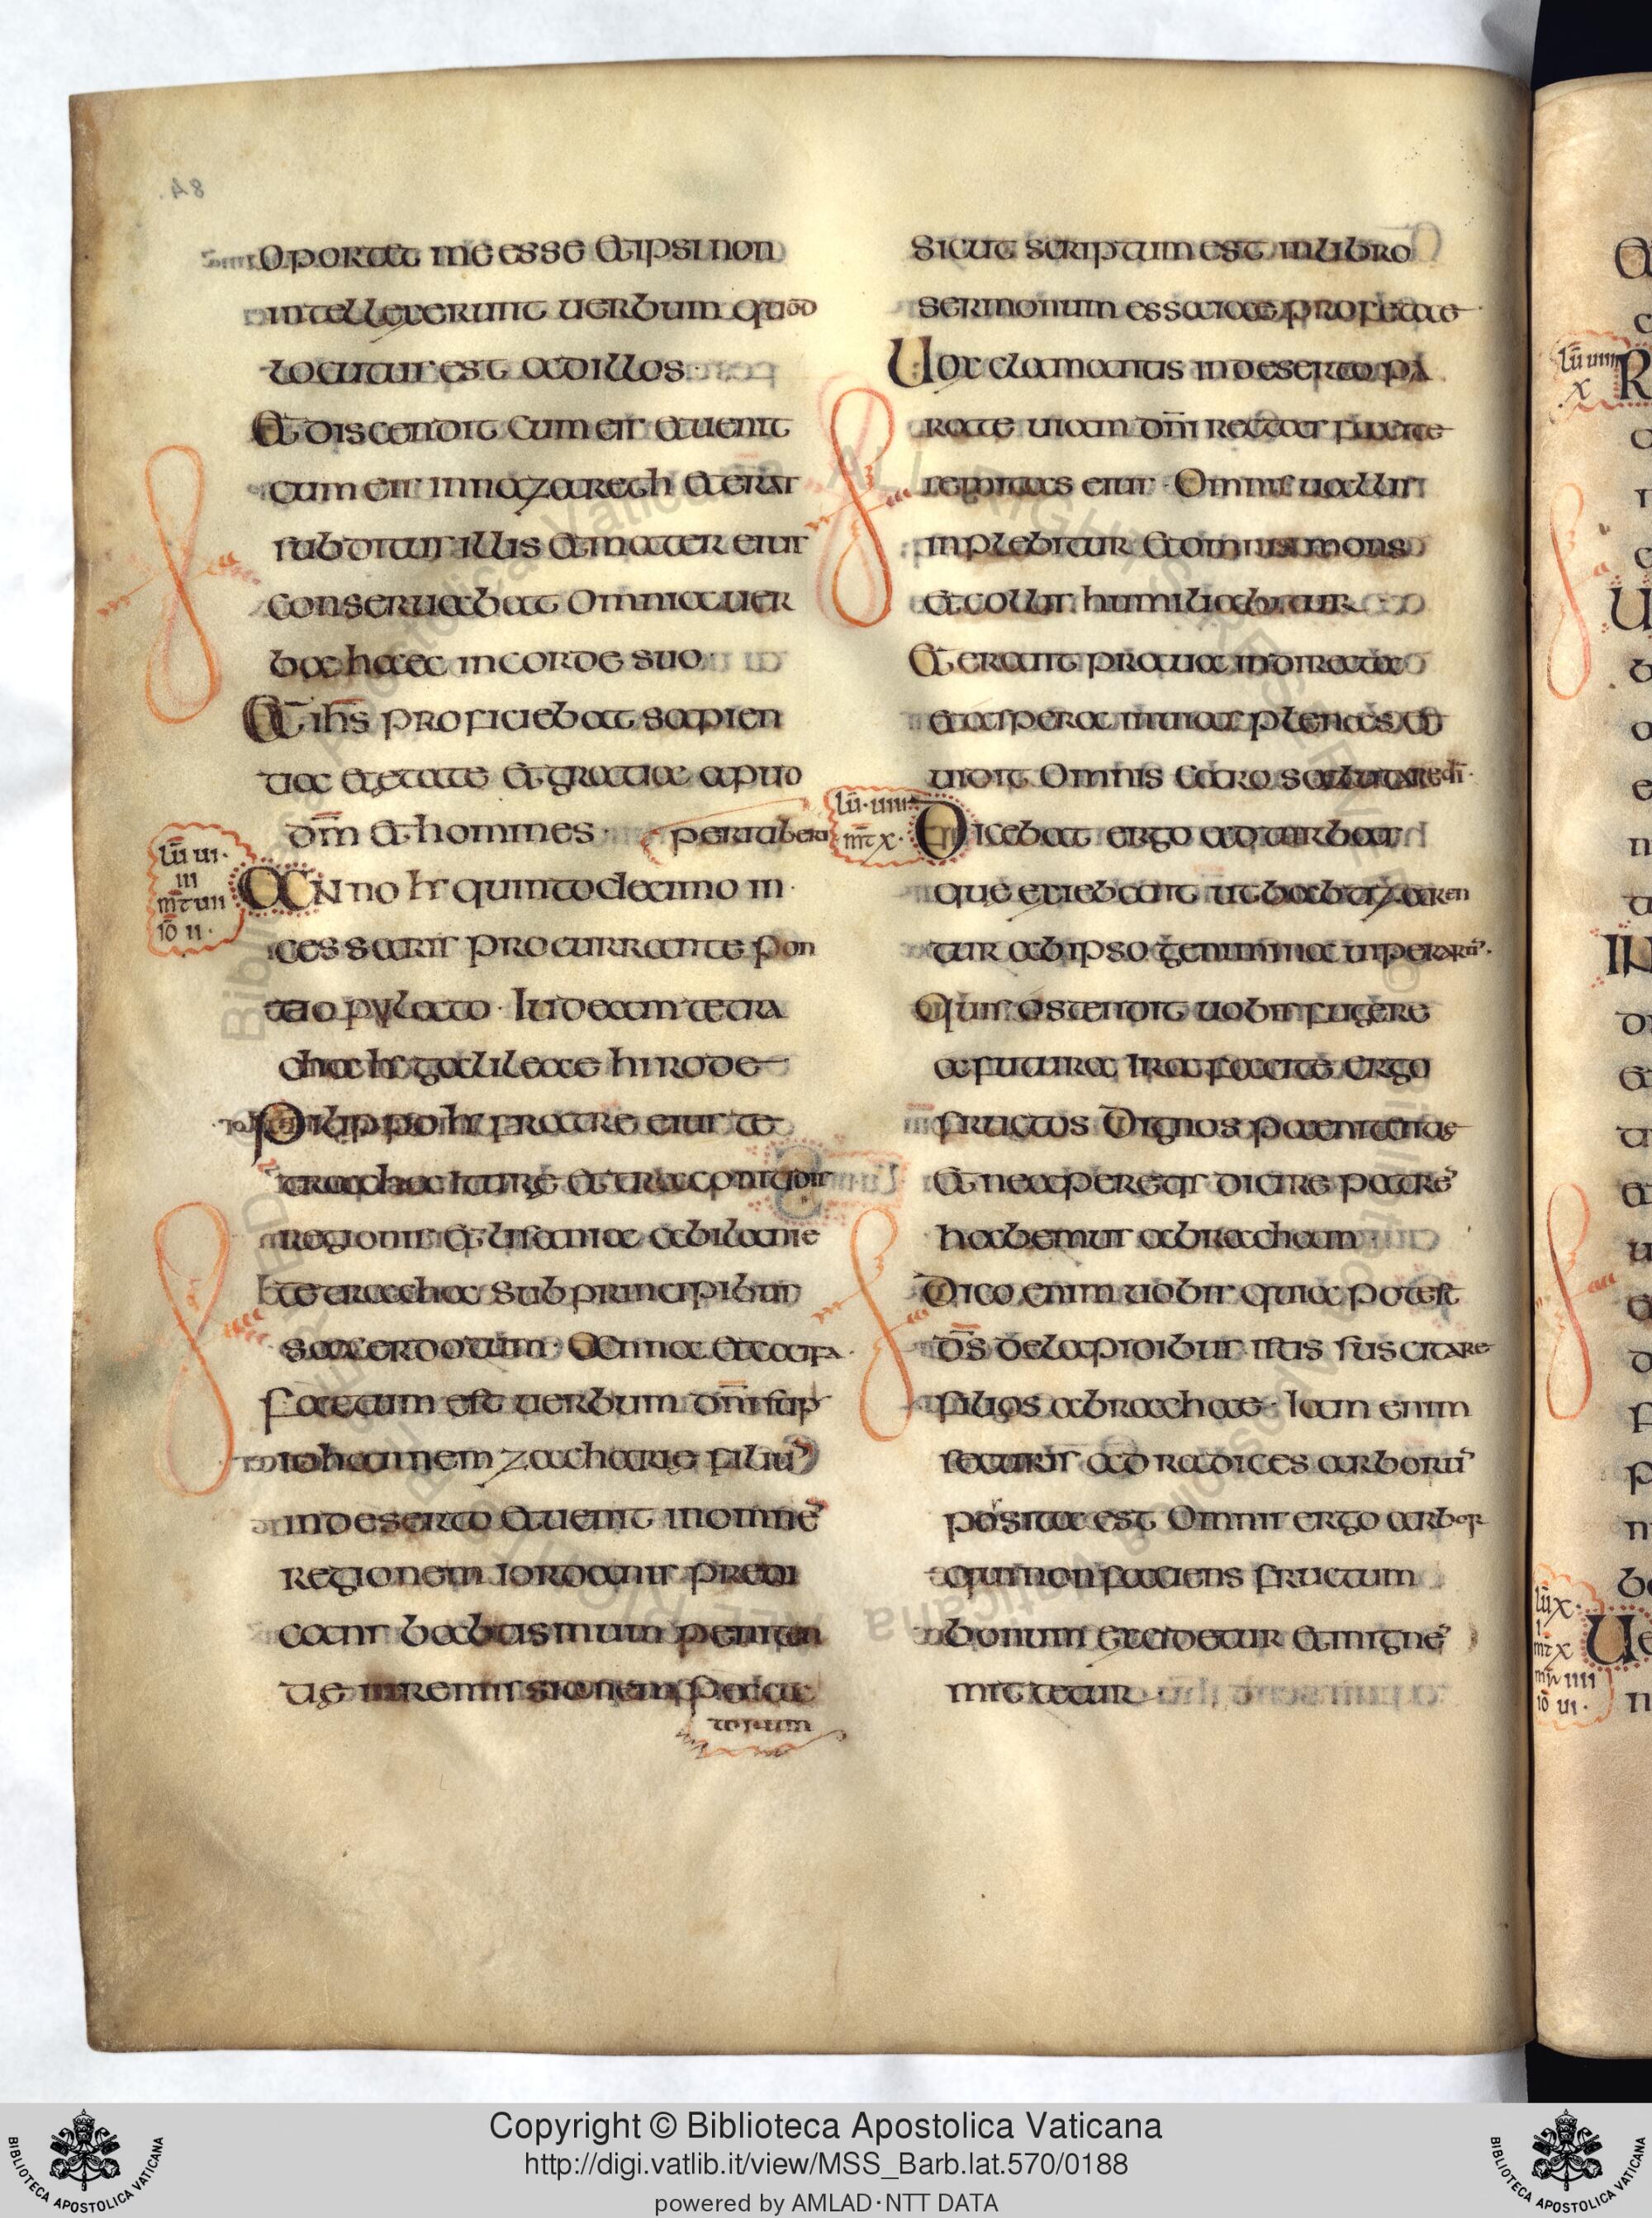 oportet me esse et ipsi non
intellexerunt uerbum quod
locutus est ad illos
Et discendit cum eis et uenit
cum eis in nazareth et erat
subditus illis et mater eius
conseruabat omnia uer
ba haec in corde suo
Et ihs proficiebat sapien
tia et ętate et gratia apud
dm et homines
per iu beri
lū ui
iii
mt uii
iō ii
Anno hr quintodecimo in
ces saris procurrante pon
tio pylato Iudeam tetra
cha hr galileae hirode
Pilippo hr fratre eius te
tracha iturę et traconitidis
regionis et lisania abilanie
tetracha sub principibus
sacerdotum Anna et caifa
factum est uerbum dni sup
iohannem zacharię filiū
in deserto et uenit in omnē
regionem iordanis predi
cans babtismum peniten
tię in remissionem pecca
torum
sicut scriptum est in libro
sermonum essaiae profetae
Uox clamantis in deserto pa
rate uiam dni rectas facite
semitas eius Omnis uallis
inplebitur et omnis mons
et collis humiliabitur
Et erunt praua in directa
et aspera in uias plenas et
uidit omnis caro salutare di
lū uiiii
mt x
Dicebat ergo ad turbas
que exiebant ut babtizaren
tur ab ipso genimina uiperarū
Quis ostendit uobis fugere
a futura ira facite ergo
fructus dignos paenitentiae
Et ne caeperetis dicire patrē
habemus abracham
Dico enim uobis quia potest
ds de lapidibus istis suscitare
filios abrachae Iam enim
securis ad radices arborū
possita est Omnis ergo arbor
qui non faciens fructum
bonum excidetur et in ignē
mittetur
84.
lū uiiii
x
lū x
i
mt x
mr iiii
iō ui
Copyright © Biblioteca Apostolica Vaticana
http://digi.vatlib.it/view/MSS_Barb.lat.570/0188
powered by AMLAD·NTT DATA
BIBLIOTECA APOSTOLICA VATICANA
BIBLIOTECA APOSTOLICA VATICANA